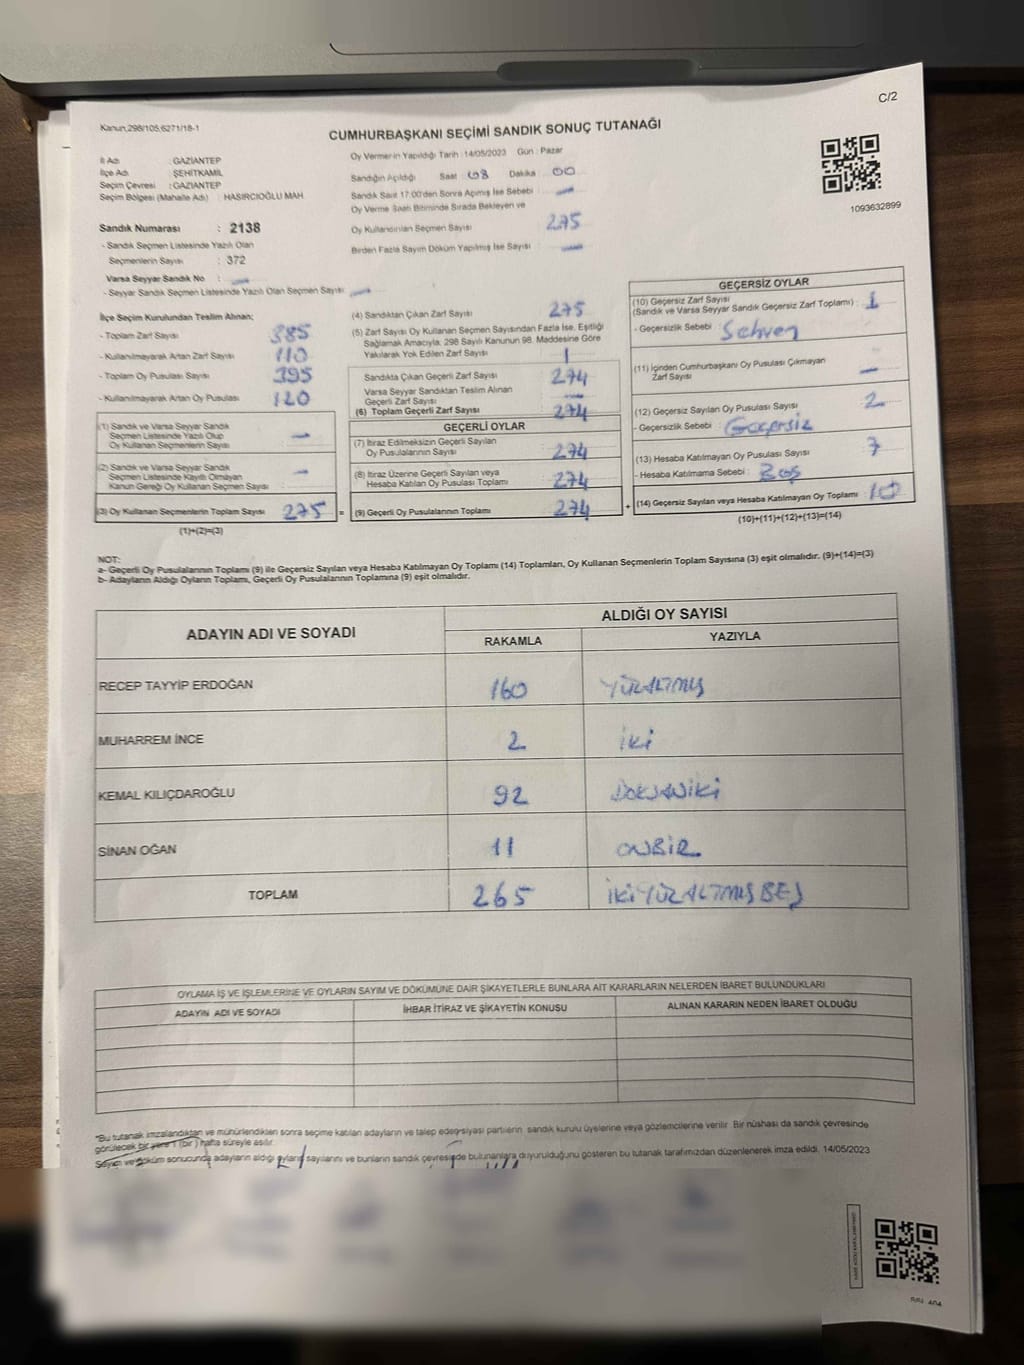 C/2
Kanun,298/105,6271/18-1
CUMHURBAŞKANI SEÇİMİ SANDIK SONUÇ TUTANAĞI
İl Adı : GAZİANTEP
İlçe Adı : ŞEHİTKAMİL
Seçim Çevresi : GAZİANTEP
Seçim Bölgesi (Mahalle Adı) : HASIRCIOĞLU MAH
Oy Vermenin Yapıldığı Tarih : 14/05/2023 Gün : Pazar
Sandığın Açıldığı Saat : 08 Dakika : 00
Sandık Saat 17:00'den Sonra Açılmış İse Sebebi : —
Oy Verme Saati Bitiminde Sırada Bekleyen ve
Oy Kullandırılan Seçmen Sayısı : 275
Birden Fazla Sayım Döküm Yapılmış İse Sayısı : —
1093632899
Sandık Numarası : 2138
- Sandık Seçmen Listesinde Yazılı Olan
Seçmenlerin Sayısı : 372
Varsa Seyyar Sandık No : —
- Seyyar Sandık Seçmen Listesinde Yazılı Olan Seçmen Sayısı : —
İlçe Seçim Kurulundan Teslim Alınan;
- Toplam Zarf Sayısı : 385
- Kullanılmayarak Artan Zarf Sayısı : 110
- Toplam Oy Pusulası Sayısı : 395
- Kullanılmayarak Artan Oy Pusulası : 120
(1) Sandık ve Varsa Seyyar Sandık
Seçmen Listesinde Yazılı Olup
Oy Kullanan Seçmenlerin Sayısı : —
(2) Sandık ve Varsa Seyyar Sandık
Seçmen Listesinde Kayıtlı Olmayan
Kanun Gereği Oy Kullanan Seçmen Sayısı : —
(3) Oy Kullanan Seçmenlerin Toplam Sayısı : 275 =
(1)+(2)=(3)
(4) Sandıktan Çıkan Zarf Sayısı : 275
(5) Zarf Sayısı Oy Kullanan Seçmen Sayısından Fazla İse, Eşitliği
Sağlamak Amacıyla; 298 Sayılı Kanunun 98. Maddesine Göre
Yakılarak Yok Edilen Zarf Sayısı : 1
Sandıkta Çıkan Geçerli Zarf Sayısı : 274
Varsa Seyyar Sandıktan Teslim Alınan
Geçerli Zarf Sayısı : —
(6) Toplam Geçerli Zarf Sayısı : 274
GEÇERLİ OYLAR
(7) İtiraz Edilmeksizin Geçerli Sayılan
Oy Pusulalarının Sayısı : 274
(8) İtiraz Üzerine Geçerli Sayılan veya
Hesaba Katılan Oy Pusulası Toplamı : 274
(9) Geçerli Oy Pusulalarının Toplamı : 274 +
GEÇERSİZ OYLAR
(10) Geçersiz Zarf Sayısı
(Sandık ve Varsa Seyyar Sandık Geçersiz Zarf Toplamı) : 1
- Geçersizlik Sebebi : Sehven
(11) İçinden Cumhurbaşkanı Oy Pusulası Çıkmayan
Zarf Sayısı : —
(12) Geçersiz Sayılan Oy Pusulası Sayısı : 2
- Geçersizlik Sebebi : Geçersiz
(13) Hesaba Katılmayan Oy Pusulası Sayısı : 7
- Hesaba Katılmama Sebebi : Boş
(14) Geçersiz Sayılan veya Hesaba Katılmayan Oy Toplamı : 10
(10)+(11)+(12)+(13)=(14)
NOT:
a- Geçerli Oy Pusulalarının Toplamı (9) ile Geçersiz Sayılan veya Hesaba Katılmayan Oy Toplamı (14) Toplamları, Oy Kullanan Seçmenlerin Toplam Sayısına (3) eşit olmalıdır. (9)+(14)=(3)
b- Adayların Aldığı Oyların Toplamı, Geçerli Oy Pusulalarının Toplamına (9) eşit olmalıdır.
ADAYIN ADI VE SOYADI ALDIĞI OY SAYISI
RAKAMLA YAZIYLA
RECEP TAYYİP ERDOĞAN 160 YÜZALTMIŞ
MUHARREM İNCE 2 İKİ
KEMAL KILIÇDAROĞLU 92 DOKSANİKİ
SİNAN OĞAN 11 ONBİR
TOPLAM 265 İKİYÜZALTMIŞBEŞ
OYLAMA İŞ VE İŞLEMLERİNE VE OYLARIN SAYIM VE DÖKÜMÜNE DAİR ŞİKAYETLERLE BUNLARA AİT KARARLARIN NELERDEN İBARET BULUNDUKLARI
ADAYIN ADI VE SOYADI İHBAR İTİRAZ VE ŞİKAYETİN KONUSU ALINAN KARARIN NEDEN İBARET OLDUĞU
"Bu tutanak imzalandıktan ve mühürlendikten sonra seçime katılan adayların ve talep eden siyasi partilerin sandık kurulu üyelerine veya gözlemcilerine verilir. Bir nüshası da sandık çevresinde
görülecek bir yere 1 (bir) hafta süreyle asılır.
Sayım ve döküm sonucunda adayların aldığı oyların sayılarını ve bunların sandık çevresinde bulunanlara duyurulduğunu gösteren bu tutanak tarafımızdan düzenlenerek imza edildi. 14/05/2023